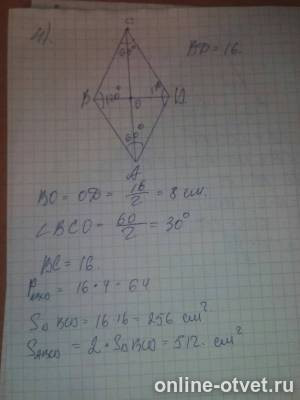 4)
C
60°
BD = 16.
B
120°
O
D
60°
A
BO = OD = 16/2 = 8 см.
∠BCO - 60/2 = 30°
BC = 16.
P = 16 · 4 = 64
S△BCD = 16·16 = 256 см²
SABCD = 2 · S△BCD = 512 см²
online-otvet.ru